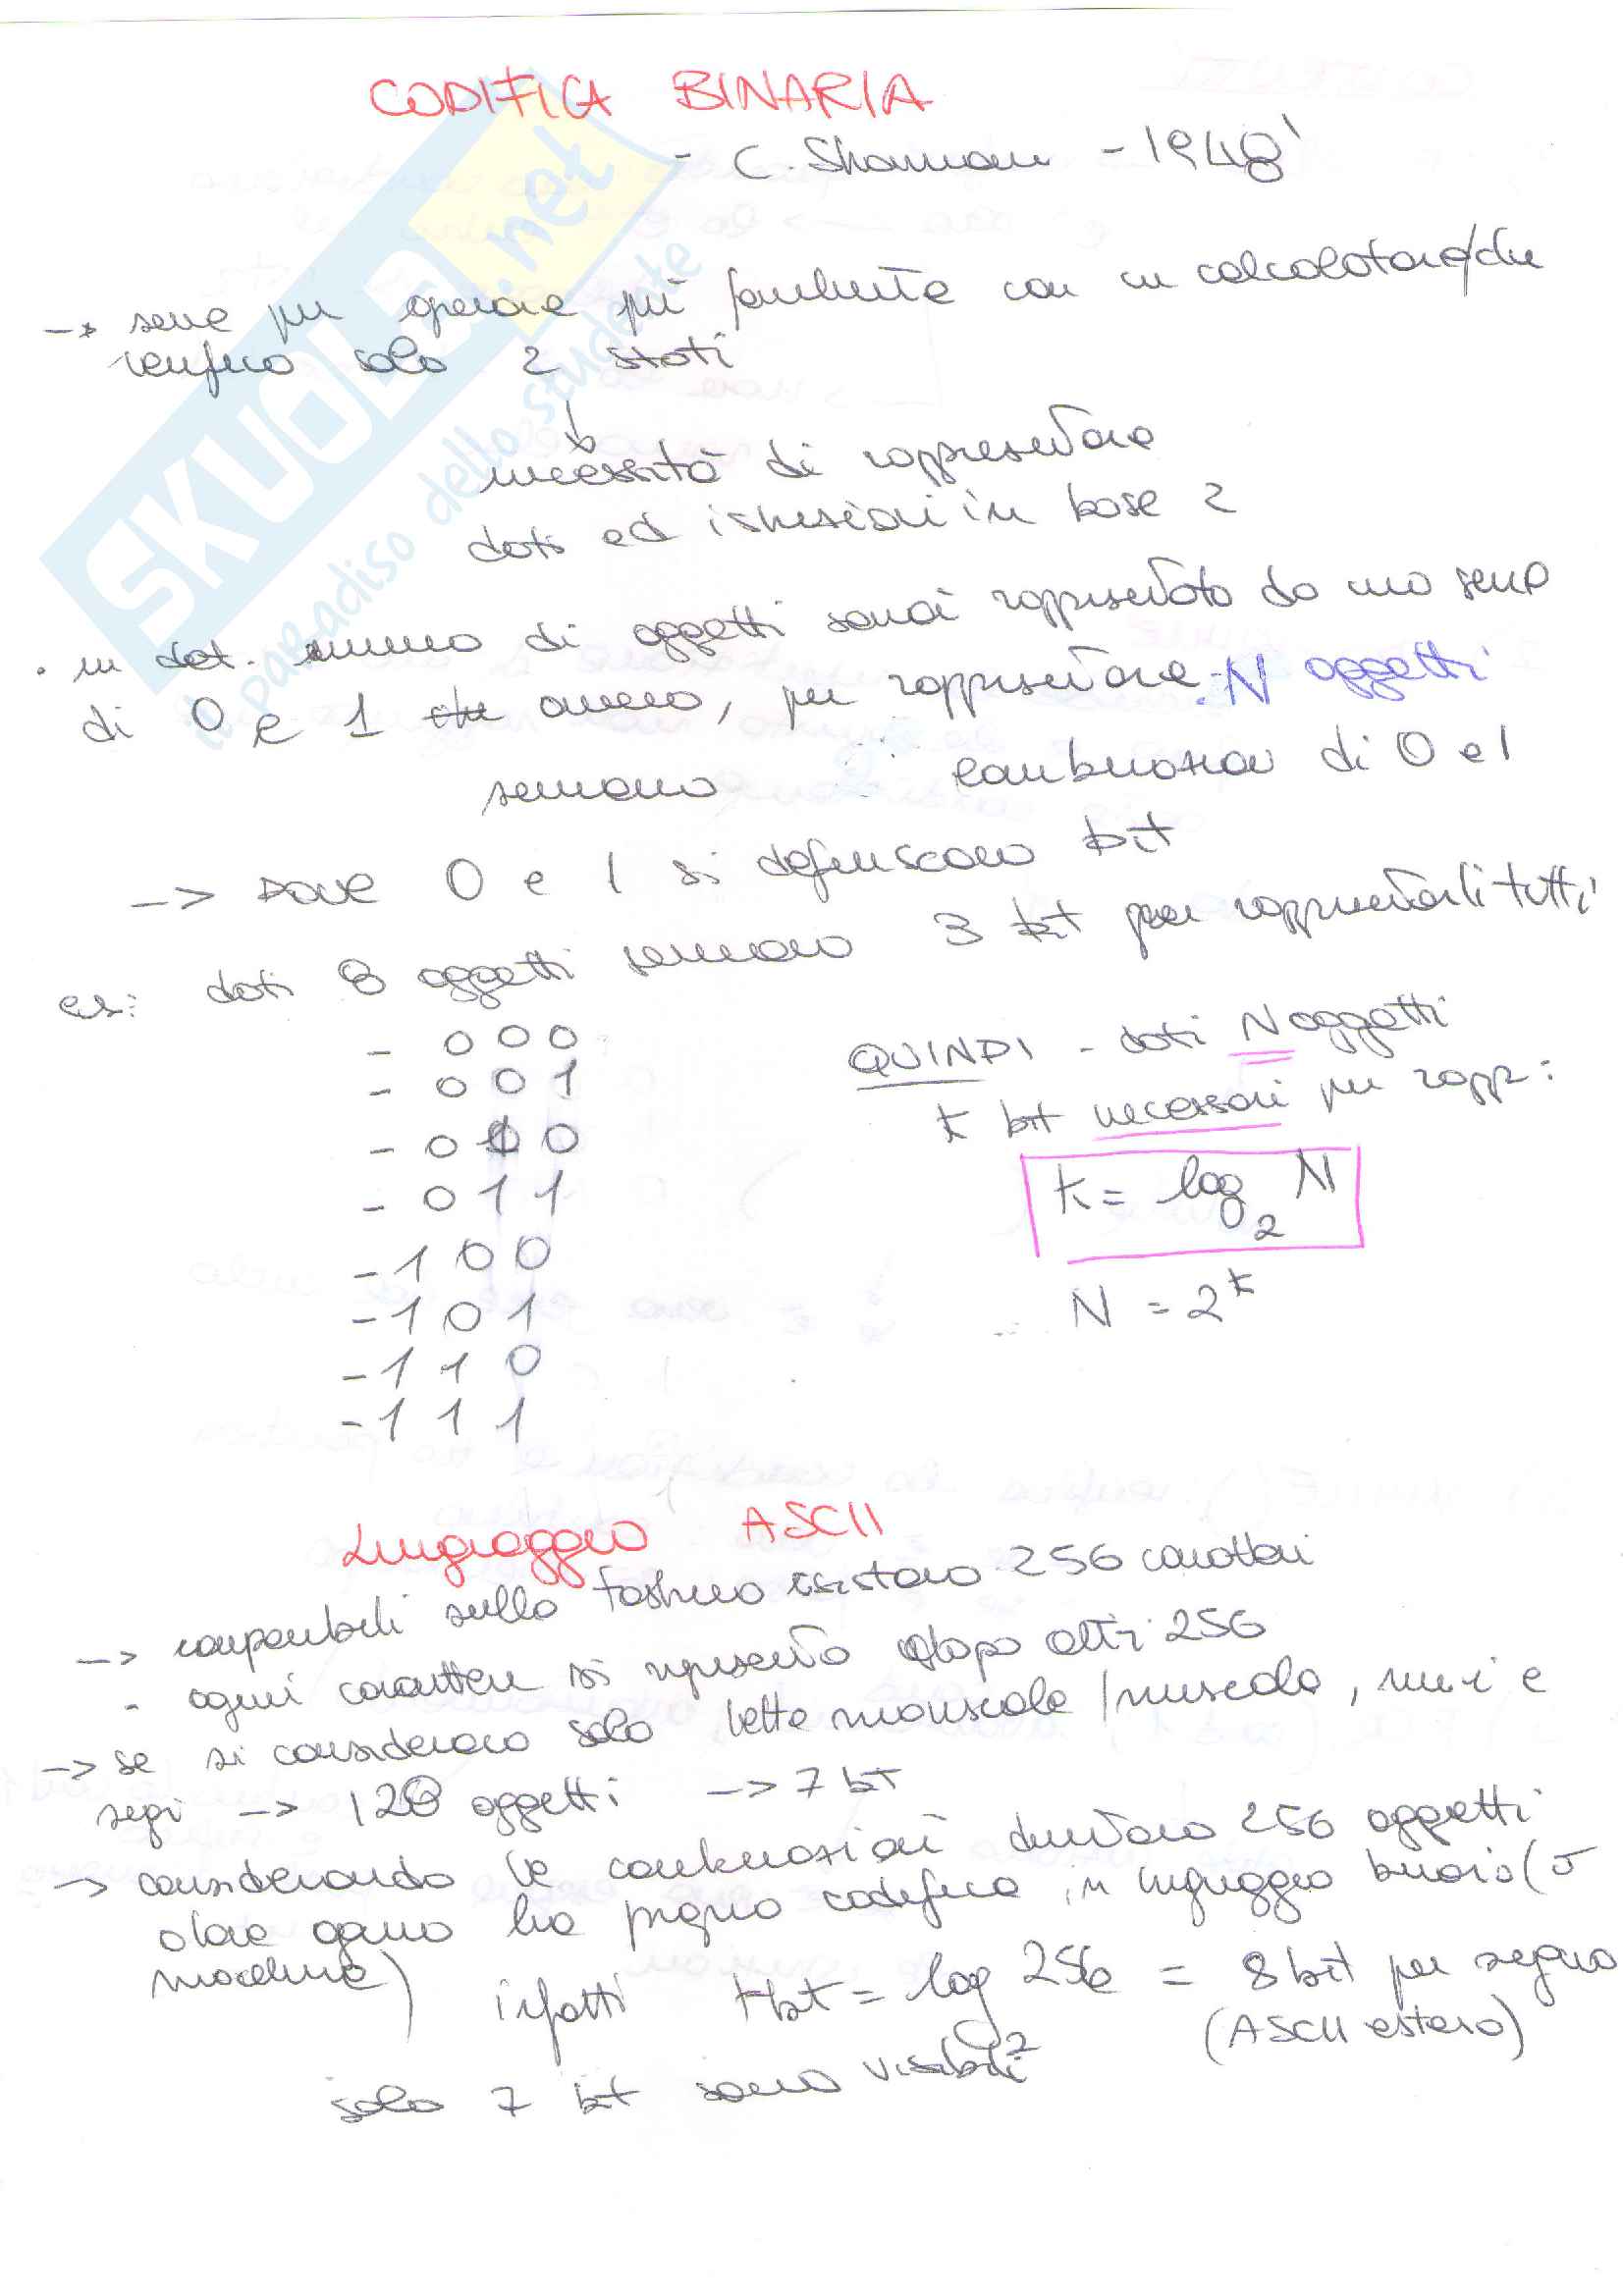 CODIFICA BINARIA
- C. Shannon - 1948
-> serve per operare più facilmente con un calcolatore/che
verifica solo 2 stati
necessità di rappresentare
dati ed istruzioni in base 2
• un det. numero di oggetti sarà rappresentato da una serie
di 0 e 1 ovvero, per rappresentare N oggetti
servono combinazioni di 0 e 1
-> dove 0 e 1 si definiscono bit
es: dati 8 oggetti servono 3 bit per rappresentarli tutti
- 000
- 001
- 010
- 011
- 100
- 101
- 110
- 111
QUINDI - dati N oggetti
k bit necessari per rapp:
k = log2 N
N = 2^k
Linguaggio ASCII
-> componibili sulla tastiera esistono 256 caratteri
- ogni carattere si ripresenta dopo altri 256
-> se si considerano solo lette maiuscole/minuscole, num.i e
segni -> 128 oggetti -> 7 bit
-> considerando le combinazioni diventano 256 oggetti
dove ognuno ha propria codifica in linguaggio binario (o
macchina)
infatti kbit = log2 256 = 8 bit per segno
(ASCII esteso)
solo 7 bit sono visibili
SKUOLA.net
il paradiso dello studente